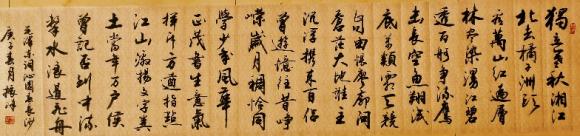 獨立寒秋湘江
北去橘子洲头
看萬山红遍層
林尽染漫江碧
透百舸争流鹰
击長空魚翔浅
底萬類霜天競
自由怅寥廓问
蒼茫大地谁主
沉浮携来百侣
曾游憶往昔峥
嵘岁月稠恰同
學少年风華
正茂書生意氣
挥斥方遒指點
江山激扬文字粪
土當年万户侯
曾記否到中流
擊水浪遏飛舟
毛泽东词沁园春长沙
庚子夏月